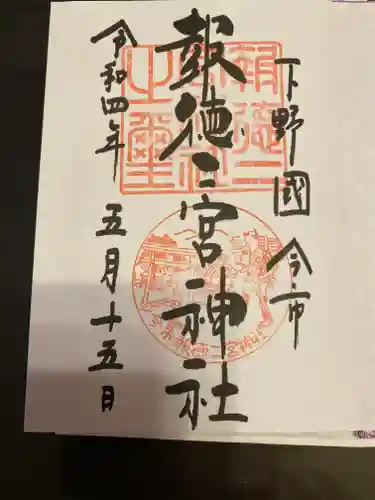 下野國 今市
報徳二宮神社
令和四年 五月十五日
報徳二宮神社之璽